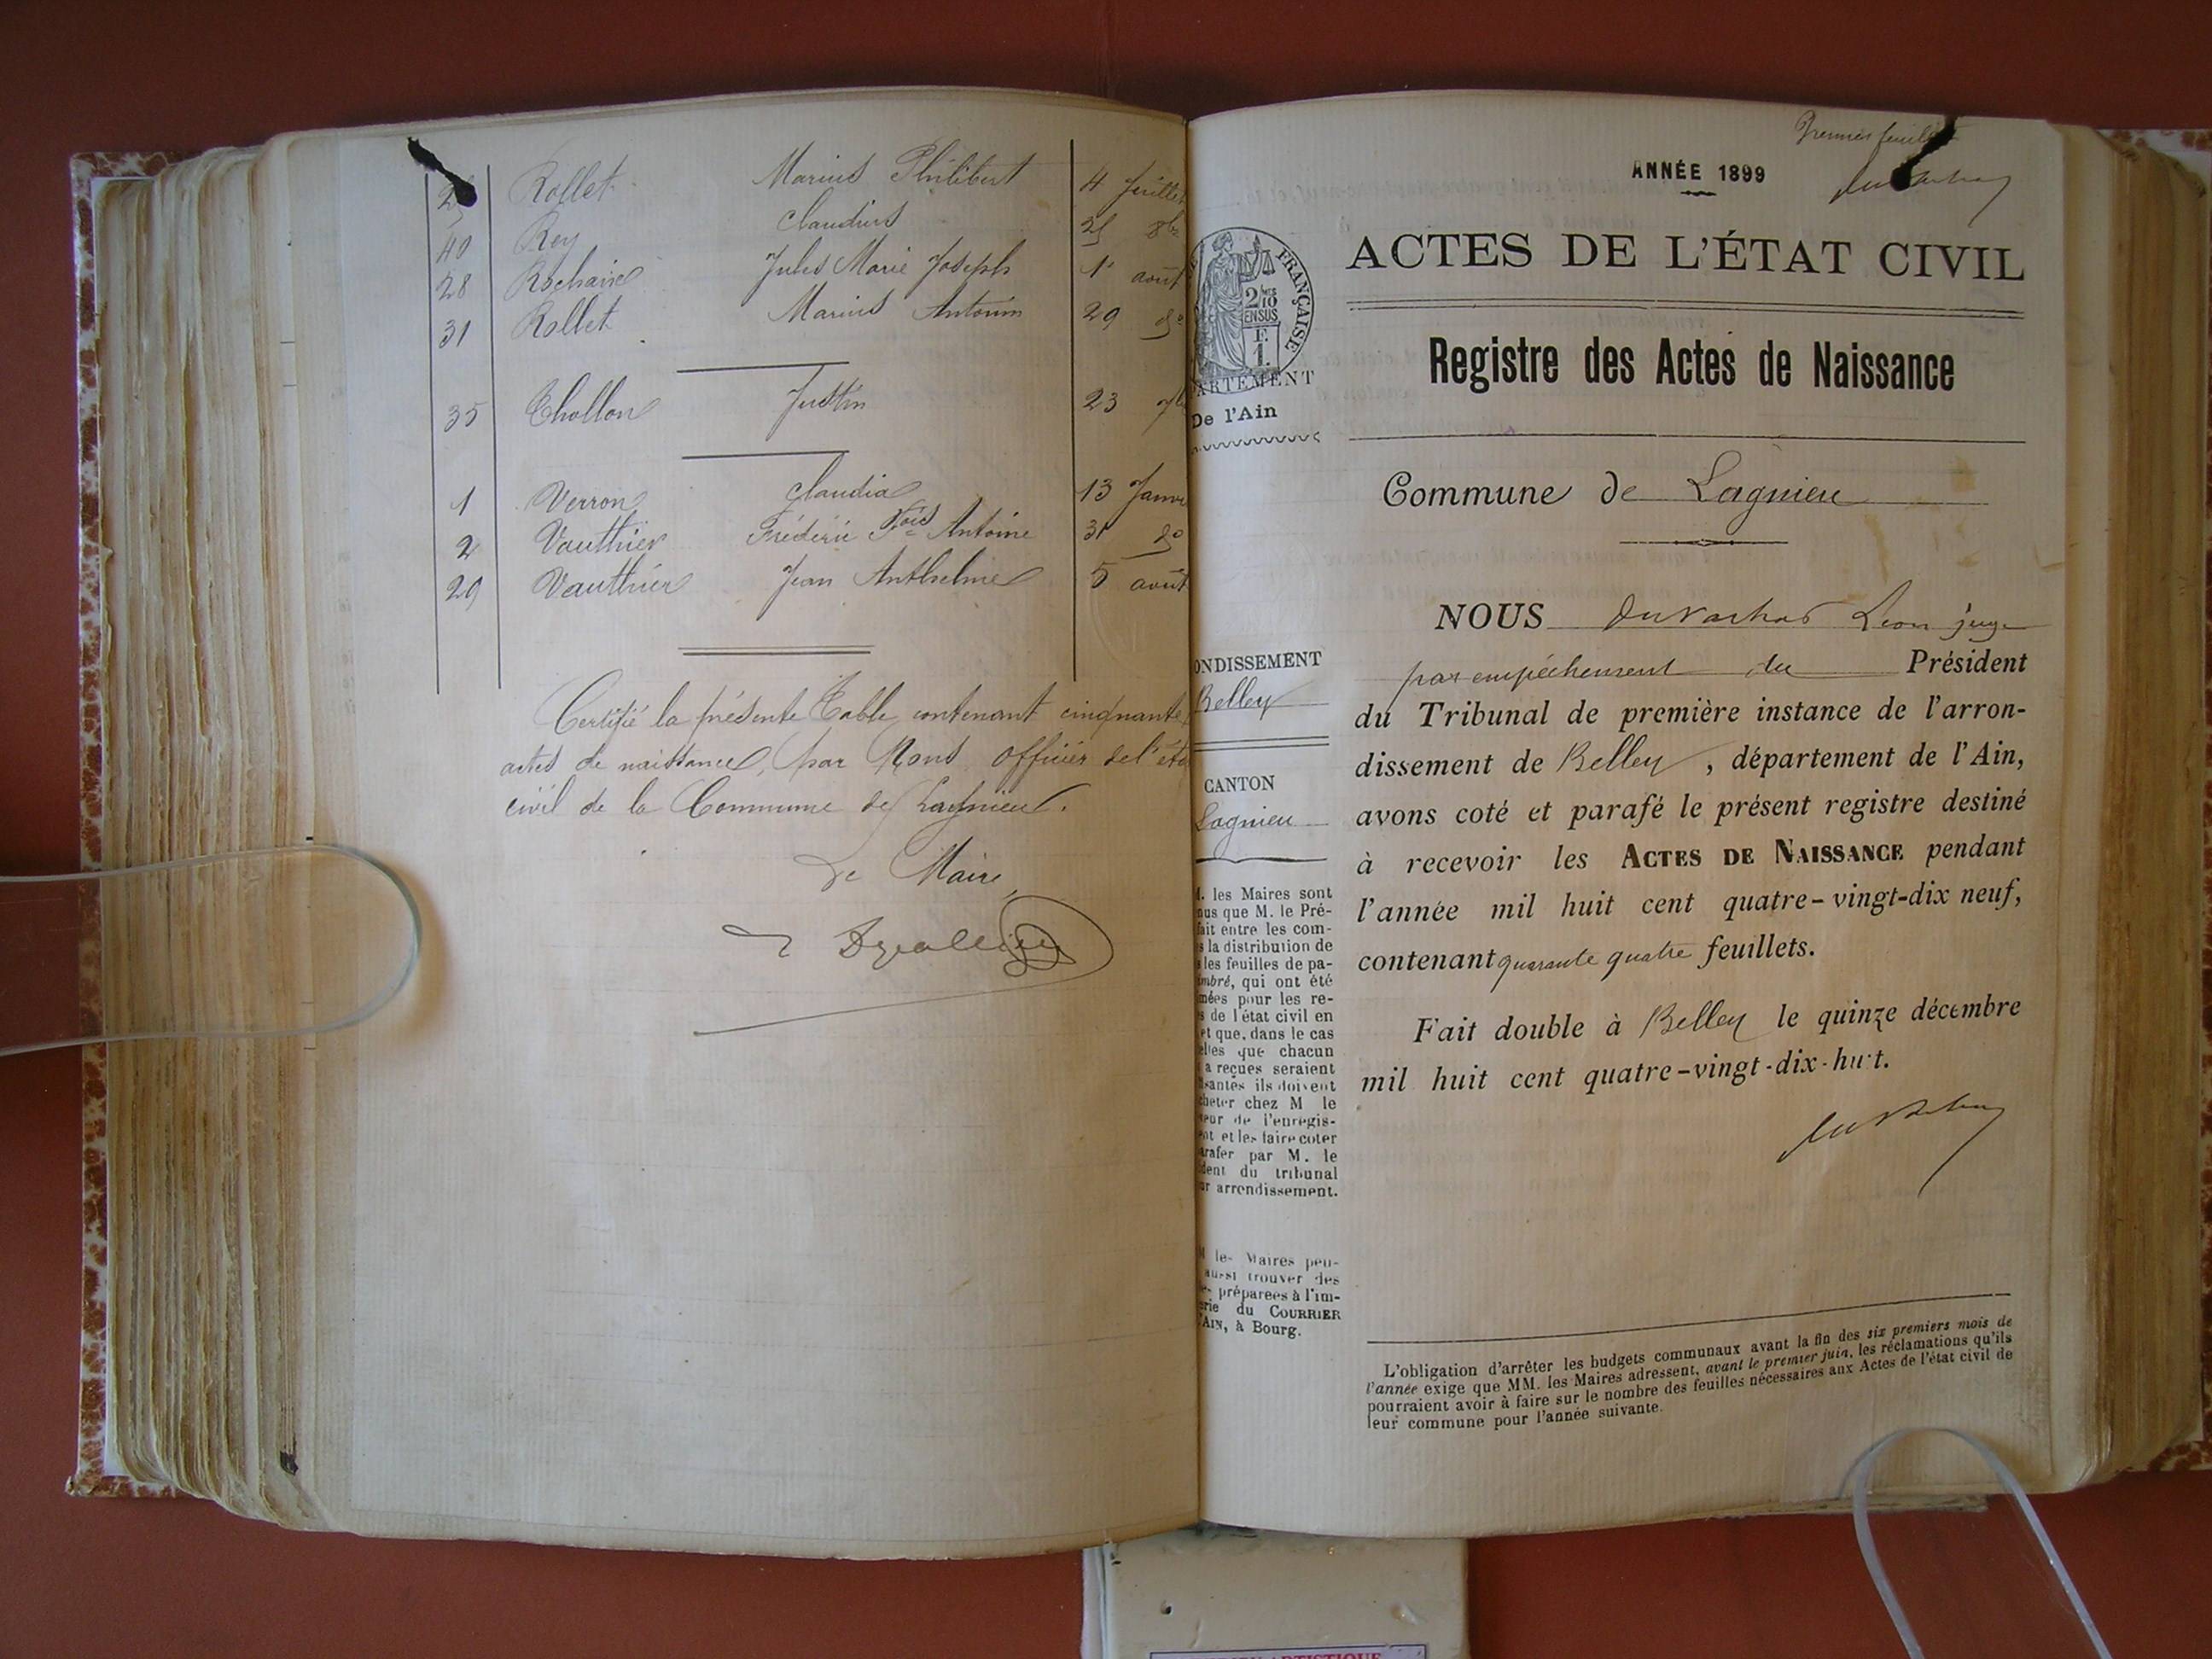 Rollet Marius Philibert 4 Juillet
40 Rey Claudius 25 8bre
28 Rochaix Jules Marie Joseph 1er août
31 Rollet Marius Antonin 29 do
35 Thollon Justin 23 7b
1 Verron Claudia 13 Janv
2 Vauthier Frédéric Fois Antoine 31 do
29 Vauthier Jean Anthelme 5 août
Certifié la présente Table contenant cinquante
actes de naissance, par Nous officier de l'éta
civil de la Commune de Lagnieu.
Le Maire
Premier feuillet
ANNÉE 1899
ACTES DE L'ÉTAT CIVIL
Registre des Actes de Naissance
Commune de Lagnieu
NOUS Léon juge
par empêchement du Président
du Tribunal de première instance de l'arron-
dissement de Belley, département de l'Ain,
avons coté et parafé le présent registre destiné
à recevoir les ACTES DE NAISSANCE pendant
l'année mil huit cent quatre-vingt-dix neuf,
contenant quarante quatre feuillets.
Fait double à Belley le quinze décembre
mil huit cent quatre-vingt-dix-huit.
L'obligation d'arrêter les budgets communaux avant la fin des six premiers mois de
l'année exige que MM. les Maires adressent, avant le premier juin, les réclamations qu'ils
pourraient avoir à faire sur le nombre des feuilles nécessaires aux Actes de l'état civil de
leur commune pour l'année suivante.
FRANÇAISE
2/10
EN SUS
F.
1.
ARTEMENT
De l'Ain
ONDISSEMENT
Belley
CANTON
Lagnieu
. les Maires sont
nus que M. le Pré-
fait entre les com-
s la distribution de
les feuilles de pa-
mbré, qui ont été
mées pour les re-
s de l'état civil en
et que, dans le cas
elles que chacun
a reçues seraient
santes ils doivent
cheter chez M le
eur de l'enregis-
nt et les faire coter
arafer par M. le
dent du tribunal
ur arrondissement.
les Maires peu-
aussi trouver des
préparées à l'im-
erie du COURRIER
'AIN, à Bourg.